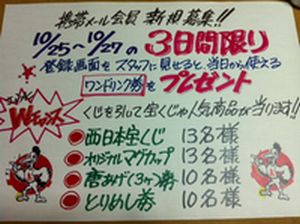 携帯メール会員 新規募集!!
10/25~10/27の3日間限り
登録画面をスタッフに見せると、当日から使える
ワンドリンク券をプレゼント
Wチャンス
くじを引いて宝くじや人気商品が当ります!!
●西日本宝くじ 13名様
●オリジナルマグカップ 13名様
●唐あげ(3ヶ)券 10名様
●とりめし券 10名様